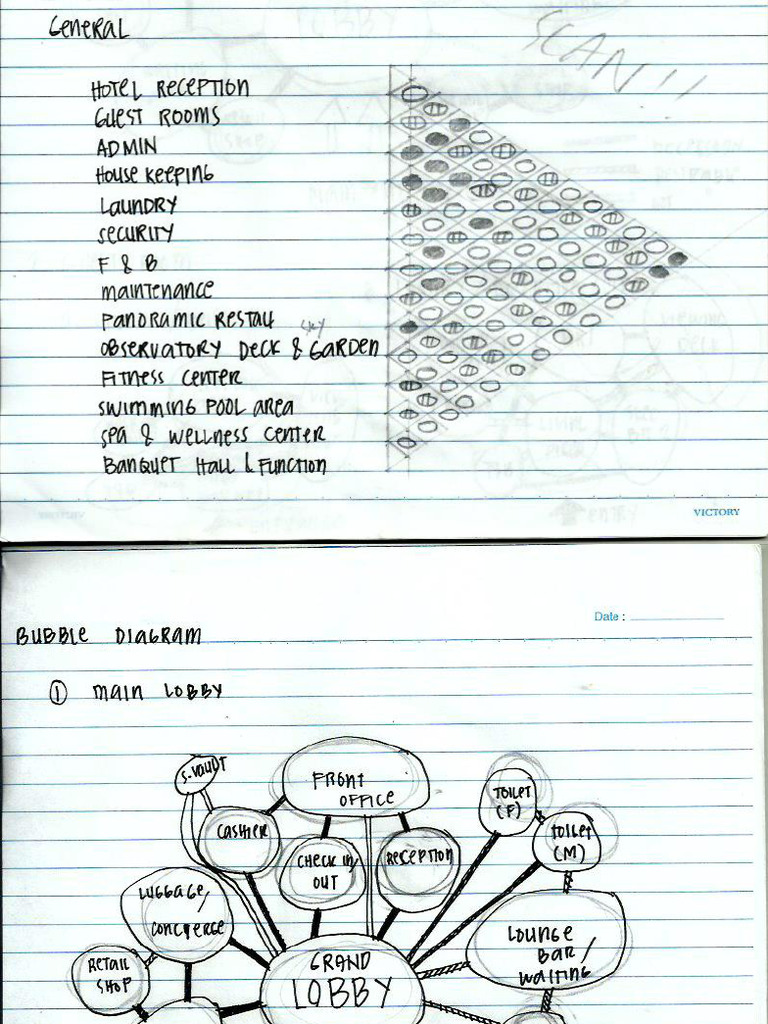 GENERAL
SCAN!!
HOTEL RECEPTION
GUEST ROOMS
ADMIN
HOUSE KEEPING
LAUNDRY
SECURITY
F & B
MAINTENANCE
PANORAMIC RESTAU
SKY
OBSERVATORY DECK & GARDEN
FITNESS CENTER
SWIMMING POOL AREA
SPA & WELLNESS CENTER
BANQUET HALL & FUNCTION
VICTORY
Date :
BUBBLE DIAGRAM
1 MAIN LOBBY
S-VAULT
FRONT
OFFICE
TOILET
(F)
CASHIER
TOILET
(M)
CHECK IN/
OUT
RECEPTION
LUGGAGE/
CONCIERGE
LOUNGE
BAR/
WAITING
RETAIL
SHOP
GRAND
LOBBY